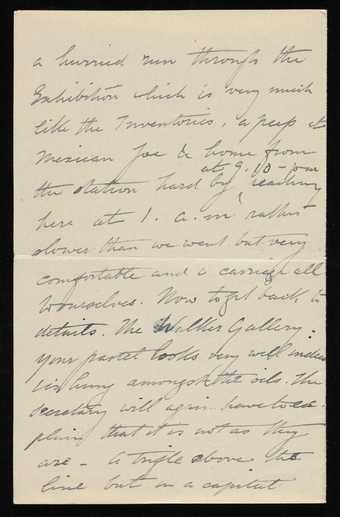 a hurried run through the
Exhibition which is very much
like the Inventories, a peep at
Mexican Joe & home from
at 9.10 - p.m
the station hard by, reaching
here at 1. a.m. rather
slower than we went but very
comfortable and a carriage all
to ourselves. Now to get back to
details. The Walker Gallery.
Your pastel looks very well indeed
is hung amongst the oils. The
Secretary will again have to ex-
plain that it is not as they
are - A trifle above the
line but in a capital